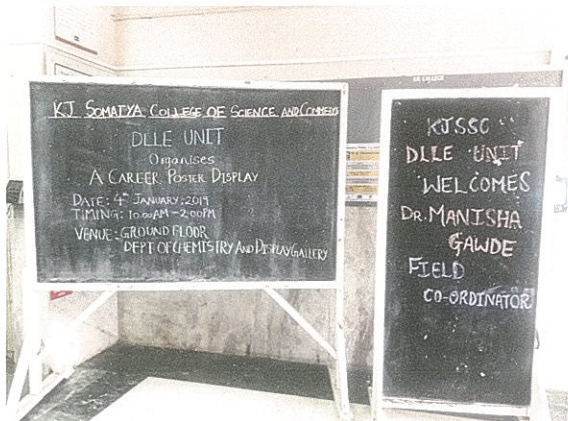 KJ SOMAIYA COLLEGE OF SCIENCE AND COMMERCE
DLLE UNIT
Organises
A CAREER POSTER DISPLAY
DATE: 4th JANUARY, 2019
TIMING: 10.00AM - 2.00PM
VENUE: GROUND FLOOR
DEPT OF CHEMISTRY AND DISPLAY GALLERY
KJSSC
DLLE UNIT
WELCOMES
DR. MANISHA
GAWDE
FIELD
CO-ORDINATOR